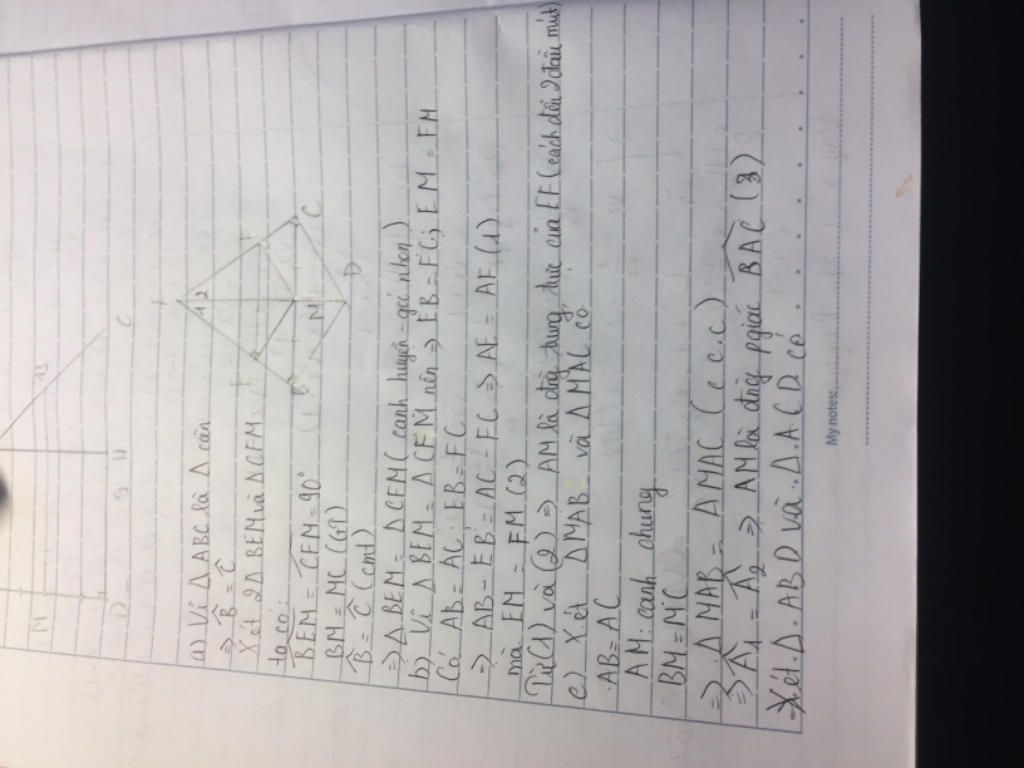 M
D
9
H
C
15
A
1
2
E
F
B
M
C
D
a) Vì Δ ABC là Δ cân
⇒ B̂ = Ĉ
Xét 2Δ BEM và ΔCFM
ta có
BEM = CFM = 90°
BM = MC (GT)
B̂ = Ĉ (cmt)
⇒ Δ BEM = Δ CFM (cạnh huyền - góc nhọn)
b) Vì Δ BEM = Δ CFM nên ⇒ EB = FC; EM = FM
Có AB = AC; EB = FC
⇒ AB - EB = AC - FC ⇒ AE = AF (1)
mà EM = FM (2)
Từ (1) và (2) ⇒ AM là đg trung trực của EF (cách đều 2 đầu mút)
c) Xét ΔMAB và ΔMAC có
AB = AC
AM: cạnh chung
BM = MC
⇒ Δ MAB = ΔMAC (c.c.c)
⇒ Â1 = Â2 ⇒ AM là đg pgiác BAC (3)
Xét Δ ABD và Δ ACD có
My notes: